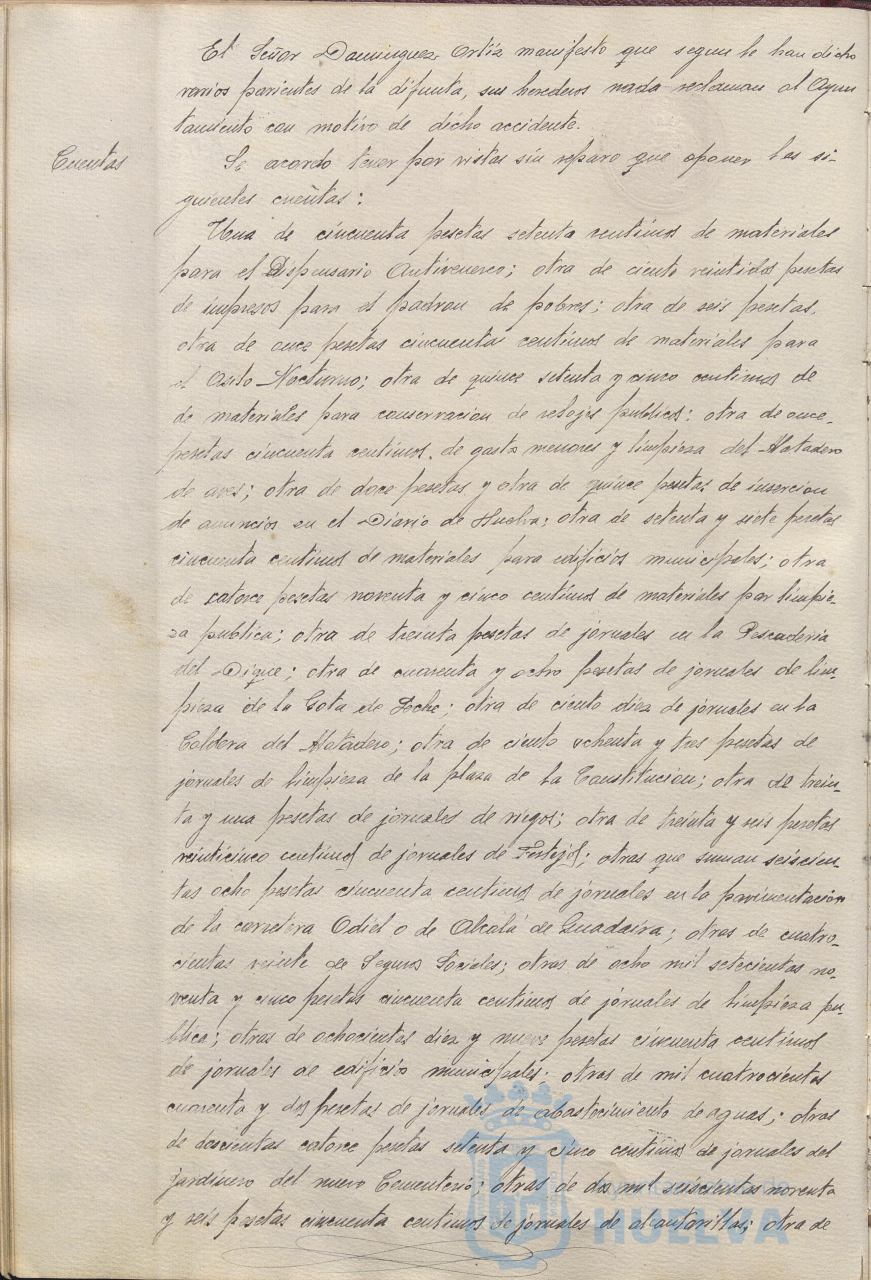 El Señor Dominguez Ortiz manifesto que segun le han dicho
varios parientes de la difunta, sus herederos nada reclaman al Ayun
tamiento con motivo de dicho accidente.
Cuentas
Se acordo tener por vistas sin reparo que oponer las si-
guientes cuentas:
Una de cincuenta pesetas setenta centimos de materiales
para el Dispensario Antivenereo; otra de ciento veintidos pesetas
de impresos para el padron de pobres; otra de seis pesetas,
otra de once pesetas cincuenta centimos de materiales para
el Asilo Nocturno; otra de quince setenta y cinco centimos de
de materiales para conservacion de relojes publicos; otra de once
pesetas cincuenta centimos de gastos menores y limpieza del Matadero
de aves; otra de doce pesetas y otra de quince pesetas de insercion
de anuncios en el Diario de Huelva; otra de setenta y siete pesetas
cincuenta centimos de materiales para edificios municipales; otra
de catorce pesetas noventa y cinco centimos de materiales por limpie-
za publica; otra de treinta pesetas de jornales en la Pescaderia
del Dique; otra de cuarenta y ocho pesetas de jornales de lim-
pieza de la Gota de Leche; otra de ciento diez de jornales en la
Caldera del Matadero; otra de ciento ochenta y tres pesetas de
jornales de limpieza de la plaza de la Constitucion; otra de trein-
ta y una pesetas de jornales de riegos; otra de treinta y seis pesetas
veinticinco centimos de jornales de Festejos; otras que suman seiscien-
tas ocho pesetas cincuenta centimos de jornales en la pavimentacion
de la carretera Odiel o de Alcalá de Guadaira; otras de cuatro-
cientas veinte de Seguros Sociales; otras de ocho mil setecientas no-
venta y cinco pesetas cincuenta centimos de jornales de limpieza pu-
blica; otras de ochocientas diez y nueve pesetas cincuenta centimos
de jornales de edificios municipales; otras de mil cuatrocientas
cuarenta y dos pesetas de jornales de abastecimiento de aguas; otras
de doscientas catorce pesetas setenta y cinco centimos de jornales del
jardinero del nuevo Cementerio; otras de dos mil seiscientas noventa
y seis pesetas cincuenta centimos de jornales de alcantarillas; otra de
HUELVA